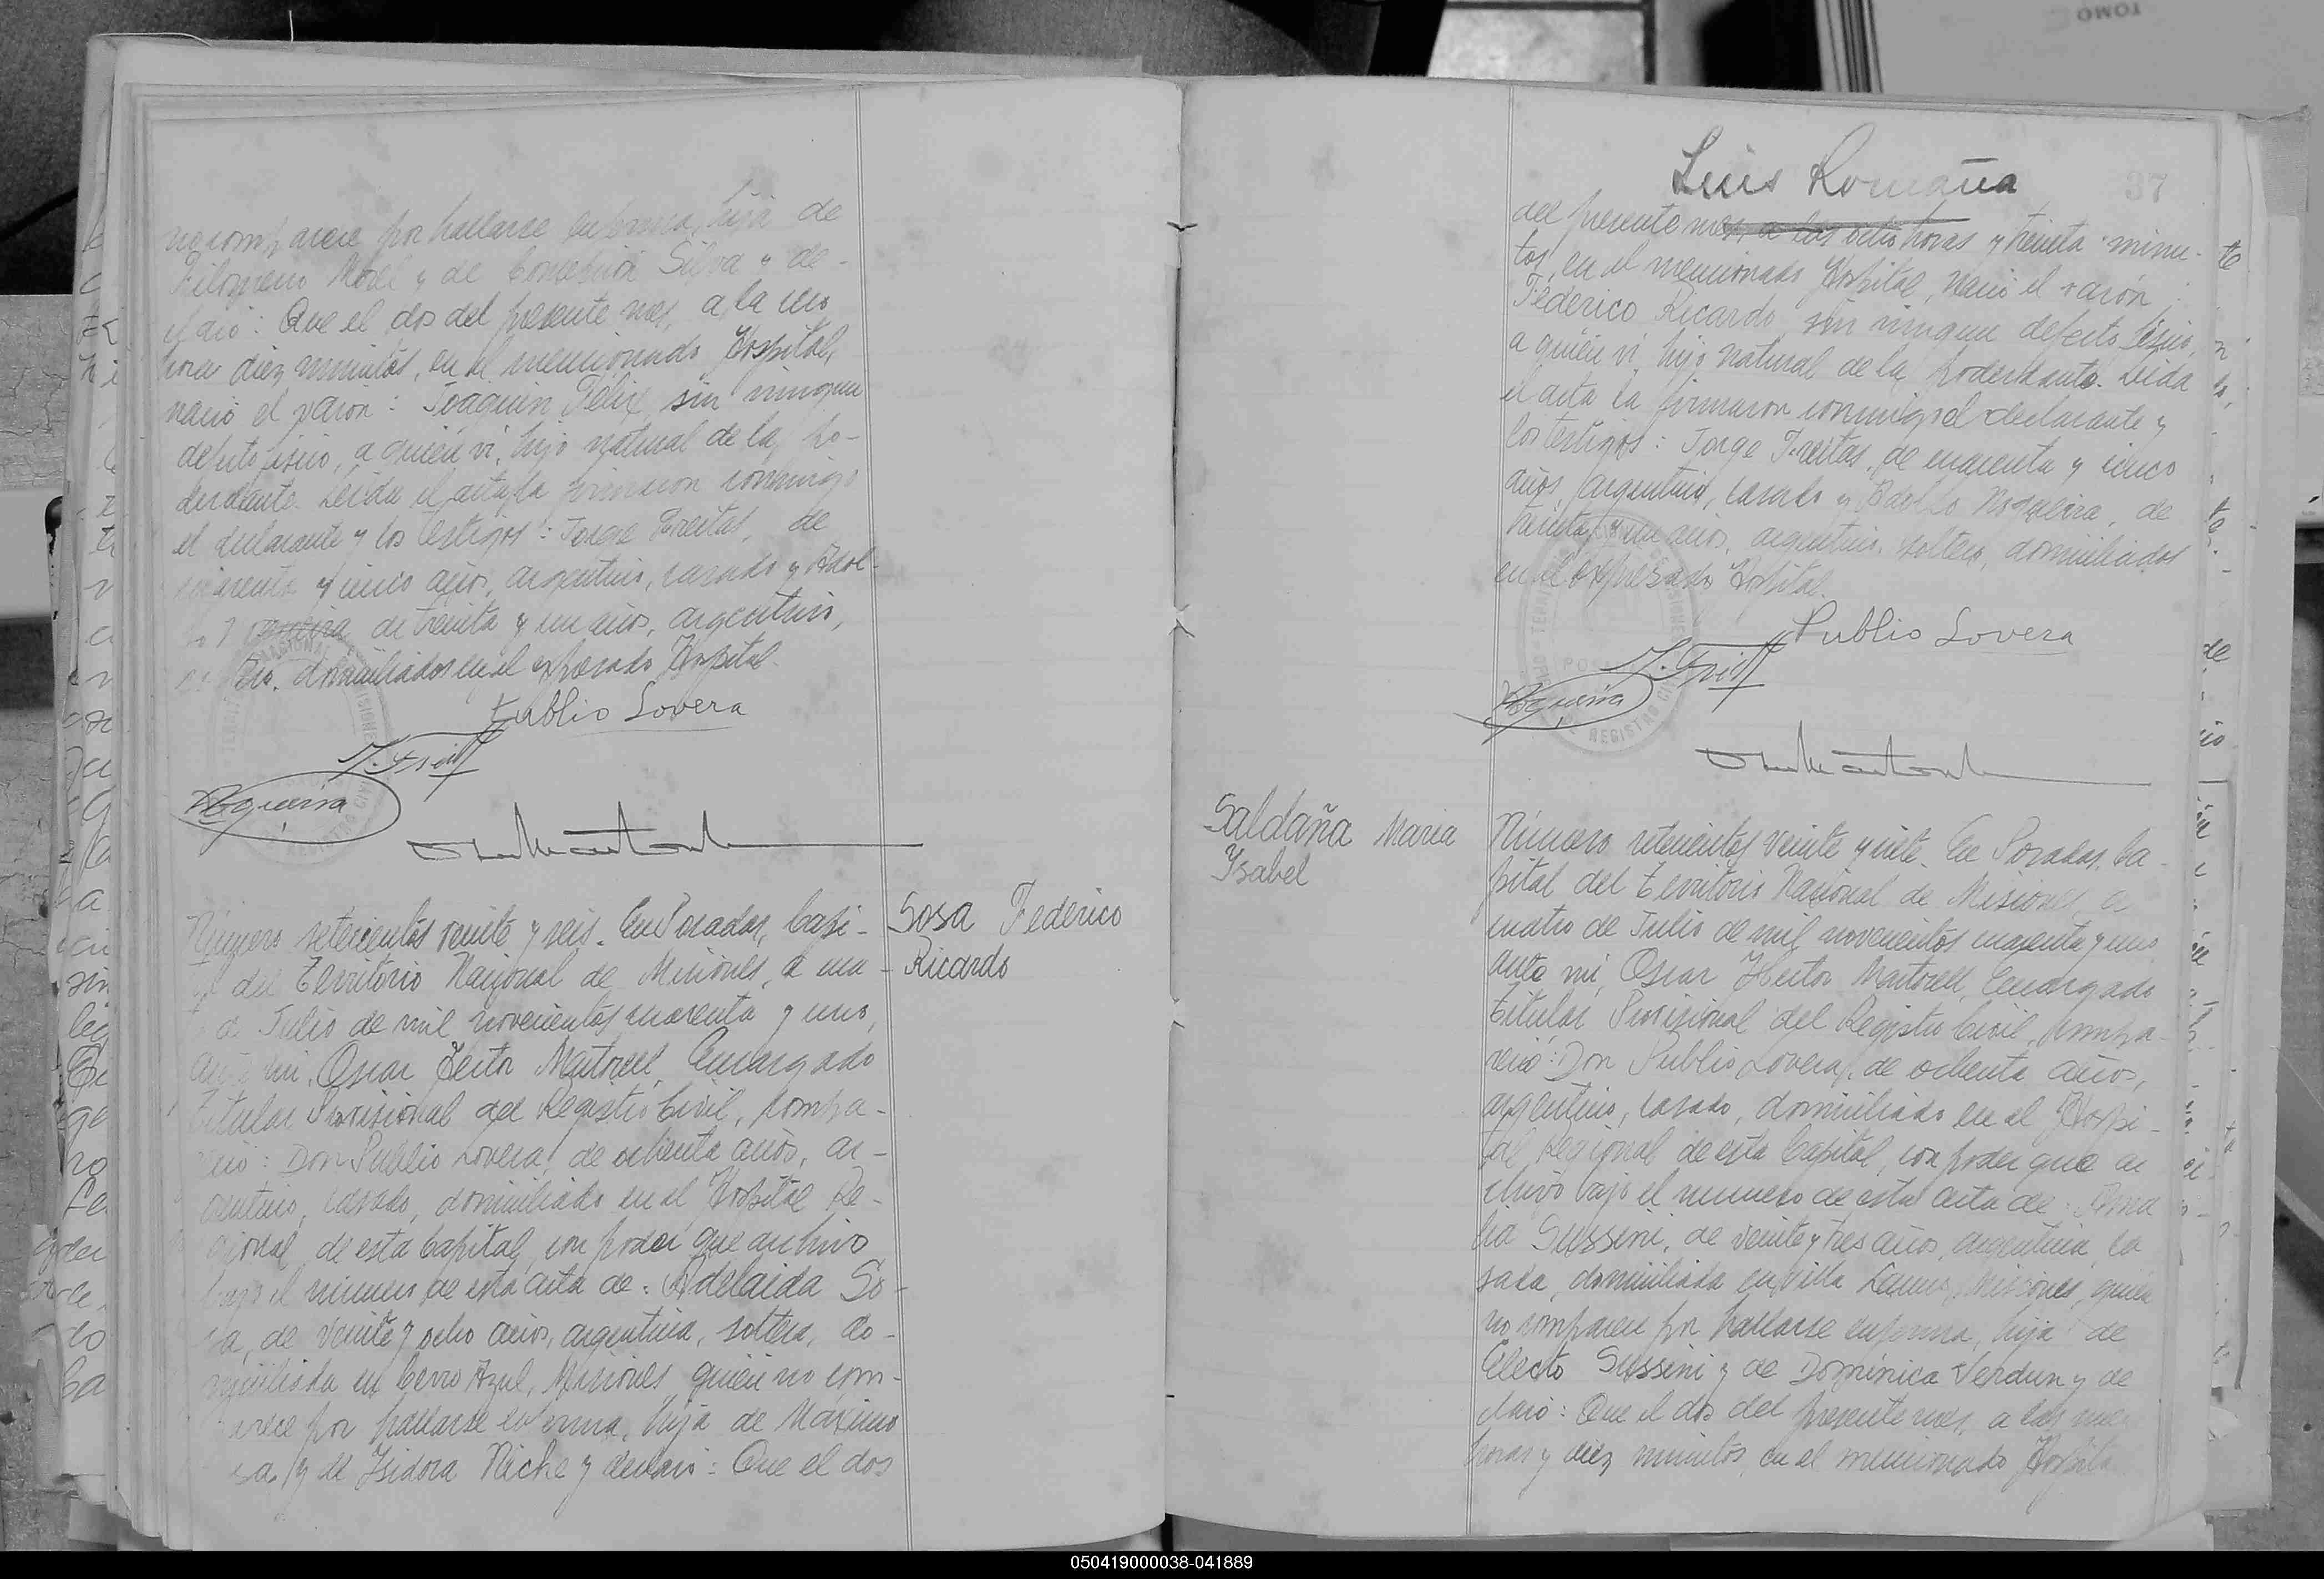 no comparece por hallarse enferma, hija de
Filomeno Morel y de Concepción Silva y de-
claró: Que el dos del presente mes, a la una
hora diez minutos, en el mencionado Hospital,
nació el varón: Joaquin Felix, sin ningun
defecto fisico, a quién vi, hijo natural de la po-
derdante. Leida el acta, la firmaron conmigo
el declarante y los testigos: Jorge Freitas, de
cuarenta y cinco años, argentino, casado y Adol-
fo Nogueira de treinta y un años, argentino,
soltero, domiciliados en el expresado Hospital.
Publio Lovera
J. Freit
Nogueira
Número setecientos veinte y seis. En Posadas, Capi-
tal del Territorio Nacional de Misiones, a cua-
tro de Julio de mil novecientos cuarenta y uno,
ante mi, Oscar Hector Martorell, Encargado
Titular Provisional del Registro Civil, compa-
reció: Don Publio Lovera, de ochenta años, ar-
gentino, casado, domiciliado en el Hospital Re-
gional de esta Capital, con poder que archivo
bajo el número de esta acta de: Adelaida So-
sa, de veinte y ocho años, argentina, soltera, do-
miciliada en Cerro Azul, Misiones, quién no com-
parece por hallarse enferma, hija de Maximo
Sosa y de Isidora Niche y declaró: Que el dos
Sosa Federico
Ricardo
Luis Romaña
37
del presente mes, a las ocho horas y treinta minu-
tos, en el mencionado Hospital, nació el varón:
Federico Ricardo, sin ningun defecto fisico,
a quién vi, hijo natural de la poderdante. Leida
el acta la firmaron conmigo el declarante y
los testigos: Jorge Freitas, de cuarenta y cinco
años, argentino, casado y Adolfo Nogueira, de
treinta y un años, argentino, soltero, domiciliados
en el expresado Hospital.
Publio Lovera
J. Freit
Nogueira
REGISTRO CIVIL
Saldaña Maria
Ysabel
Número setecientos veinte y siete. En Posadas, Ca-
pital del Territorio Nacional de Misiones, a
cuatro de Julio de mil novecientos cuarenta y uno
ante mi, Oscar Hector Martorell, Encargado
Titular Provisional del Registro Civil, compa-
reció: Don Publio Lovera, de ochenta años,
argentino, casado, domiciliado en el Hospi-
tal Regional de esta Capital, con poder que ar
chivo bajo el numero de esta acta de: Ama
lia Sussini, de veinte y tres años, argentina, ca
sada, domiciliada en Villa Lanus, Misiones, quién
no comparece por hallarse enferma, hija de
Electo Sussini y de Dominica Verdun y de
claró: Que el dos del presente mes, a las
horas y diez minutos, en el mencionado Hospital
050419000038-041889